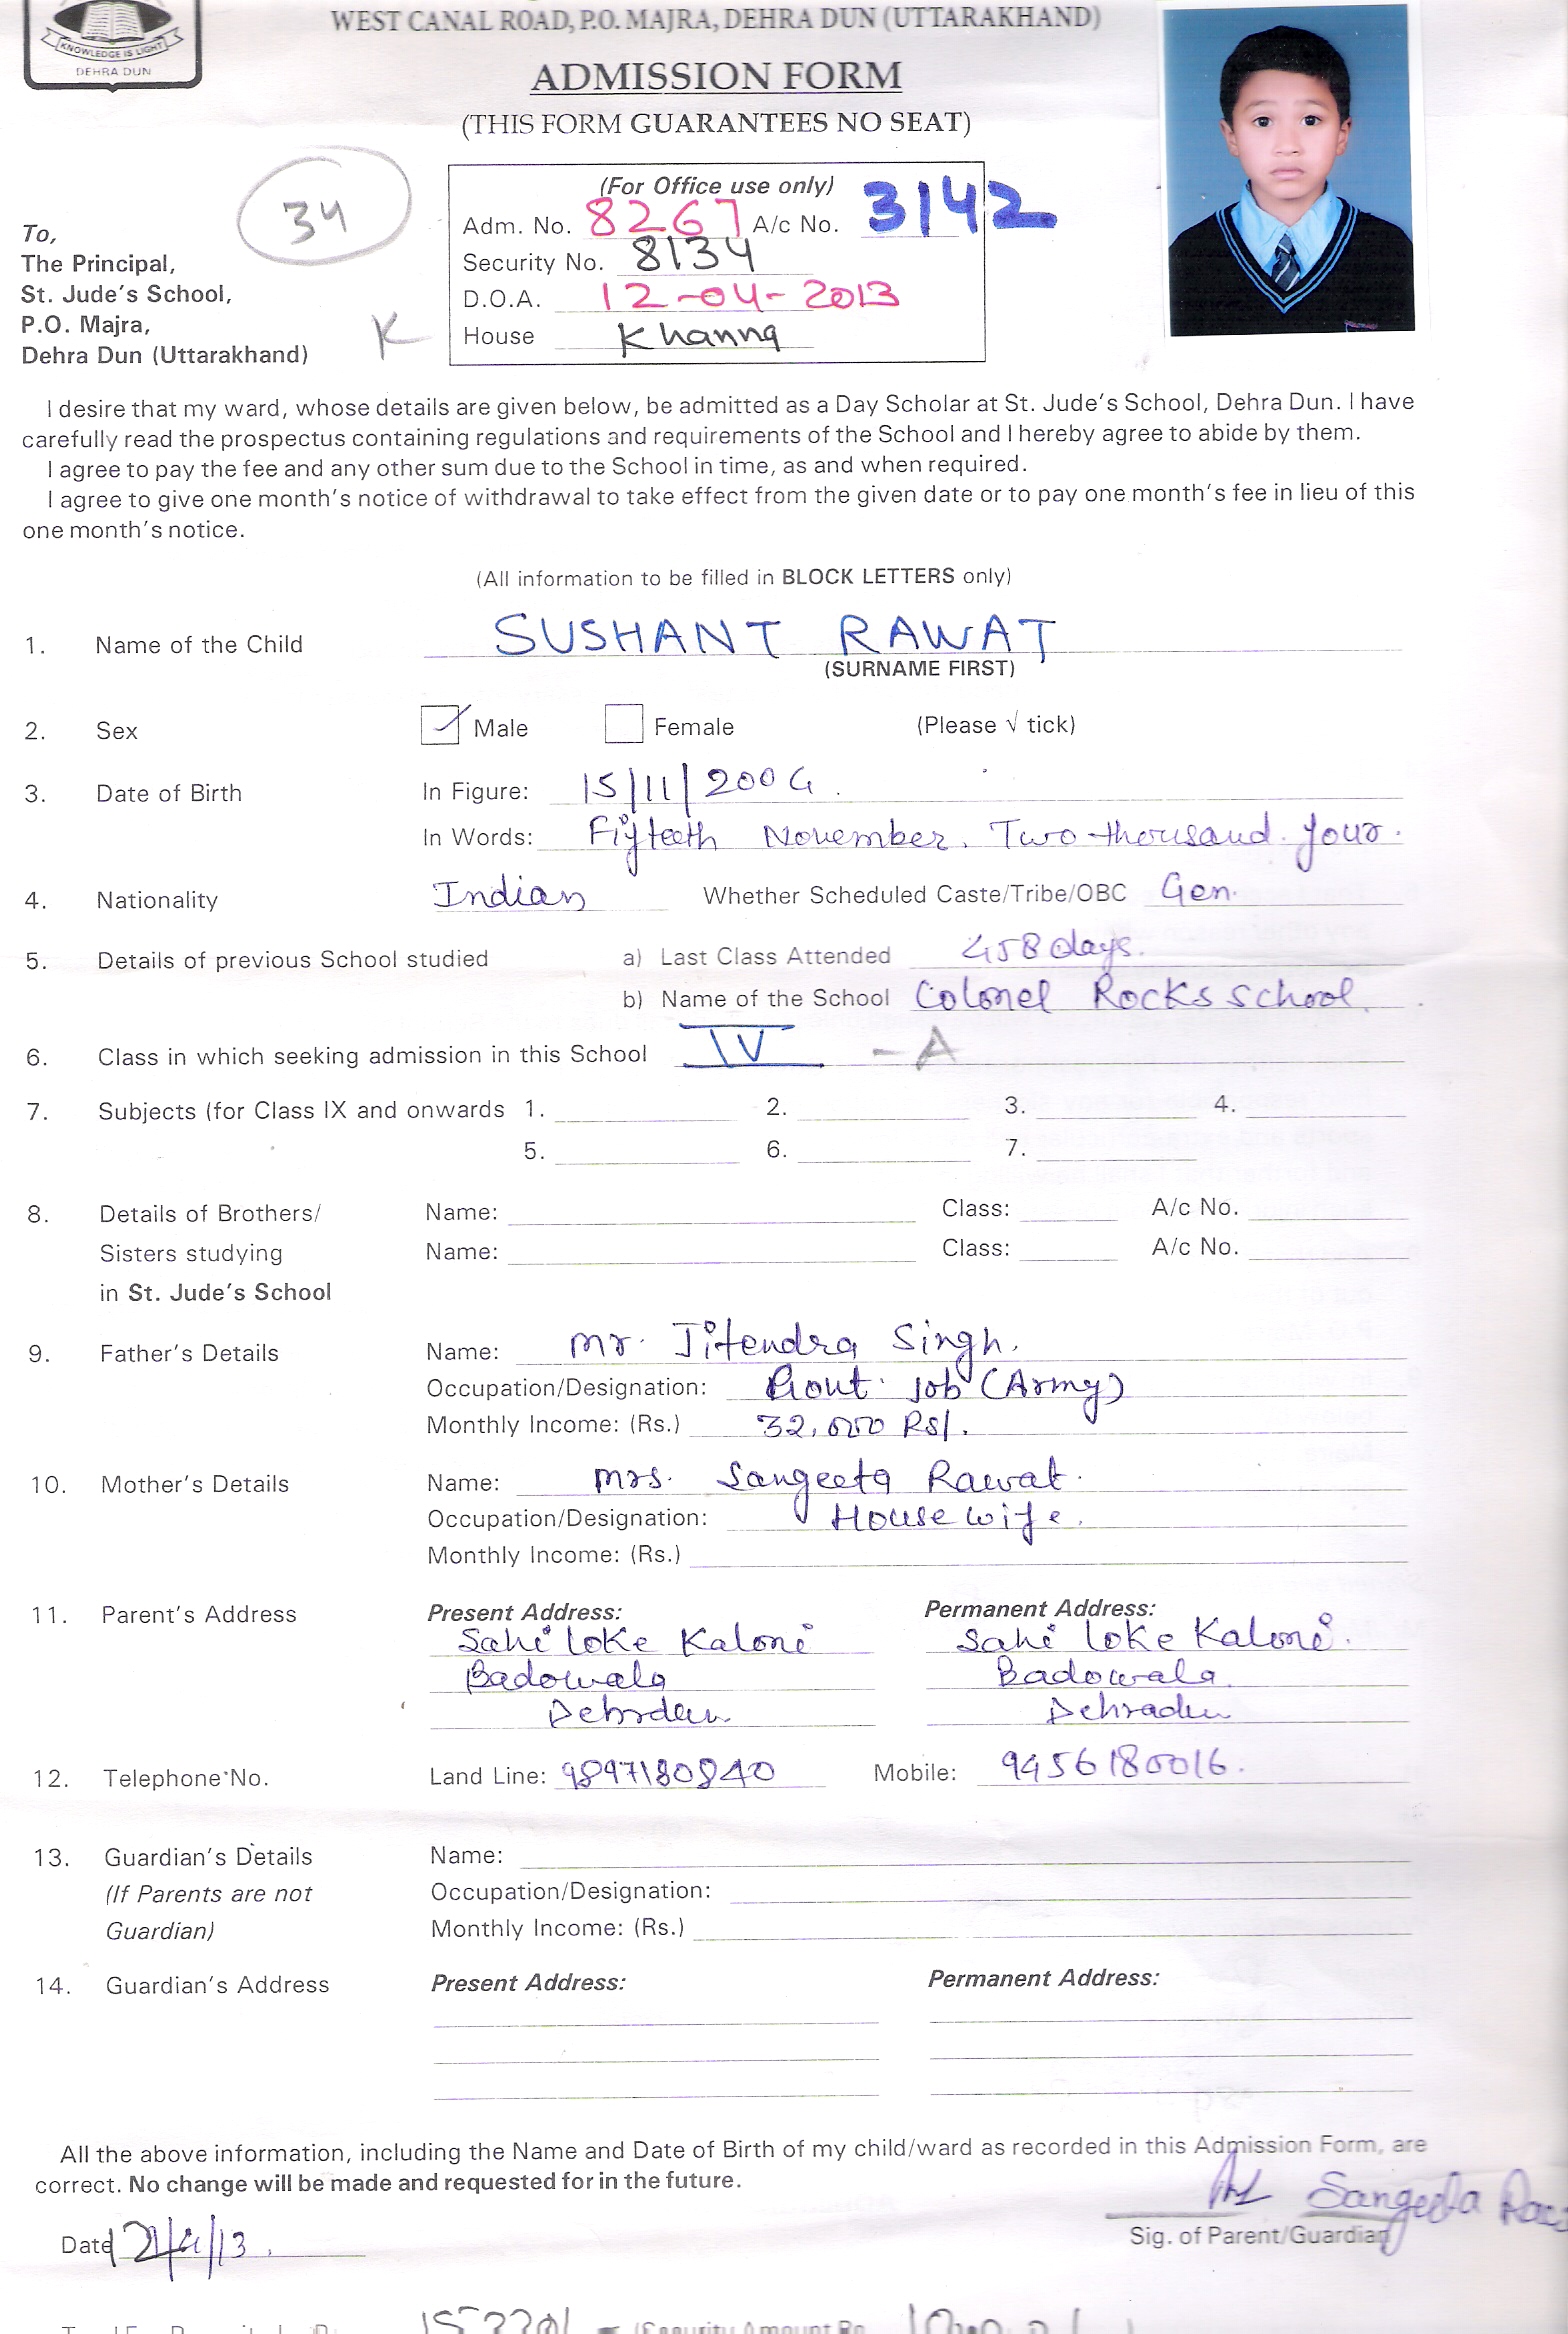 KNOWLEDGE IS LIGHT
DEHRA DUN
WEST CANAL ROAD, P.O. MAJRA, DEHRA DUN (UTTARAKHAND)
ADMISSION FORM
(THIS FORM GUARANTEES NO SEAT)
34
(For Office use only)
Adm. No. 8267 A/c No. 3142
Security No. 8134
D.O.A. 12-04-2013
House Khanna
To,
The Principal,
St. Jude's School,
P.O. Majra,
Dehra Dun (Uttarakhand)
K
I desire that my ward, whose details are given below, be admitted as a Day Scholar at St. Jude's School, Dehra Dun. I have
carefully read the prospectus containing regulations and requirements of the School and I hereby agree to abide by them.
I agree to pay the fee and any other sum due to the School in time, as and when required.
I agree to give one month's notice of withdrawal to take effect from the given date or to pay one month's fee in lieu of this
one month's notice.
(All information to be filled in BLOCK LETTERS only)
1. Name of the Child SUSHANT RAWAT
(SURNAME FIRST)
2. Sex Male Female (Please √ tick)
3. Date of Birth In Figure: 15/11/2004.
In Words: Fifteeth November. Two thousand four.
4. Nationality Indian Whether Scheduled Caste/Tribe/OBC Gen.
5. Details of previous School studied a) Last Class Attended 458 days.
b) Name of the School Colonel Rocks School.
6. Class in which seeking admission in this School IV - A
7. Subjects (for Class IX and onwards 1. 2. 3. 4.
5. 6. 7.
8. Details of Brothers/ Name: Class: A/c No.
Sisters studying Name: Class: A/c No.
in St. Jude's School
9. Father's Details Name: Mr. Jitendra Singh.
Occupation/Designation: Gout. Job (Army)
Monthly Income: (Rs.) 32,000 Rs/.
10. Mother's Details Name: Mrs. Sangeeta Rawat.
Occupation/Designation: House wife.
Monthly Income: (Rs.)
11. Parent's Address Present Address: Permanent Address:
Sahi Loke Kaloni Sahi Loke Kaloni.
Badowala Badowala
Dehrdun Dehradun
12. Telephone No. Land Line: 9897180840 Mobile: 9456180016.
13. Guardian's Details Name:
(If Parents are not Occupation/Designation:
Guardian) Monthly Income: (Rs.)
14. Guardian's Address Present Address: Permanent Address:
All the above information, including the Name and Date of Birth of my child/ward as recorded in this Admission Form, are
correct. No change will be made and requested for in the future.
Sangeeta
Date 12/4/13. Sig. of Parent/Guardian